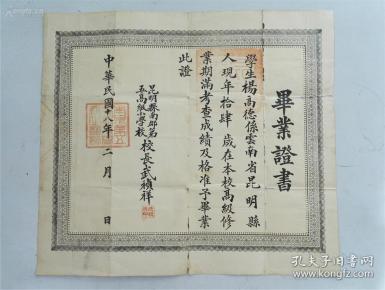 畢業證書
學生楊高德係雲南省昆明縣
人現年拾肆歲在本校高級修
業期滿考查成績及格准予畢業
此證
昆明縣南郡第
五高級小學校
校長武楨祥
中華民國十八年二月 日
孔夫子旧书网